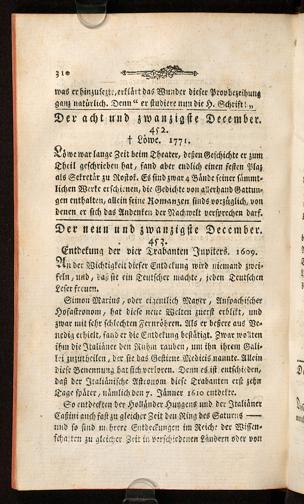 310
was er hinzusezt, erklärt das Wunder dieser Prophezeihung
ganz natürlich. Denn „ er studiere nun die H. Schrift! „
Der acht und zwanzigste December.
452.
† Löwe. 1771.
Löwe war lange Zeit beym Theater, deßen Geschichte er zum
Theil geschrieben hat, fand aber endlich einen festen Plaz
als Sekretär zu Rostok. Es sind zwar 4 Bände seiner sämmt-
lichen Werke erschienen, die Gedichte von allerhand Gattun-
gen enthalten, allein seine Romanzen sinds vorzüglich, von
denen er sich das Andenken der Nachwelt versprechen darf.
Der neun und zwanzigste December.
453.
Entdekung der vier Trabanten Jupiters. 1609.
An der Wichtigkeit dieser Entdekung wird niemand zwei-
feln, und, daß sie ein Teutscher machte, jeden Teutschen
Leser freuen.
Simon Marius, oder eigentlich Mayer, Anspachischer
Hofastronom, hat diese neuen Welten zuerst erblikt, und
zwar mit sehr schlechten Fernröhren. Als er beßere aus Ve-
nedig erhielt, fand er die Entdekung bestätigt. Zwar wollten
ihm die Italiäner den Ruhm rauben, um ihn ihrem Gali-
lei zuzutheilen, der sie das Gestirne Medicis nannte. Allein
diese Benennung hat sich verloren. Denn es ist entschieden,
daß der Italiänische Astronom diese Trabanten erst zehn
Tage später, nämlich den 7. Jänner 1610 entdekte.
So entdekten der Holländer Huygens und der Italiäner
Caßini auch fast zu gleicher Zeit den Ring des Saturns —
und so sind mehrere Entdekungen im Reiche der Wissen-
schaften zu gleicher Zeit in verschiedenen Ländern oder von